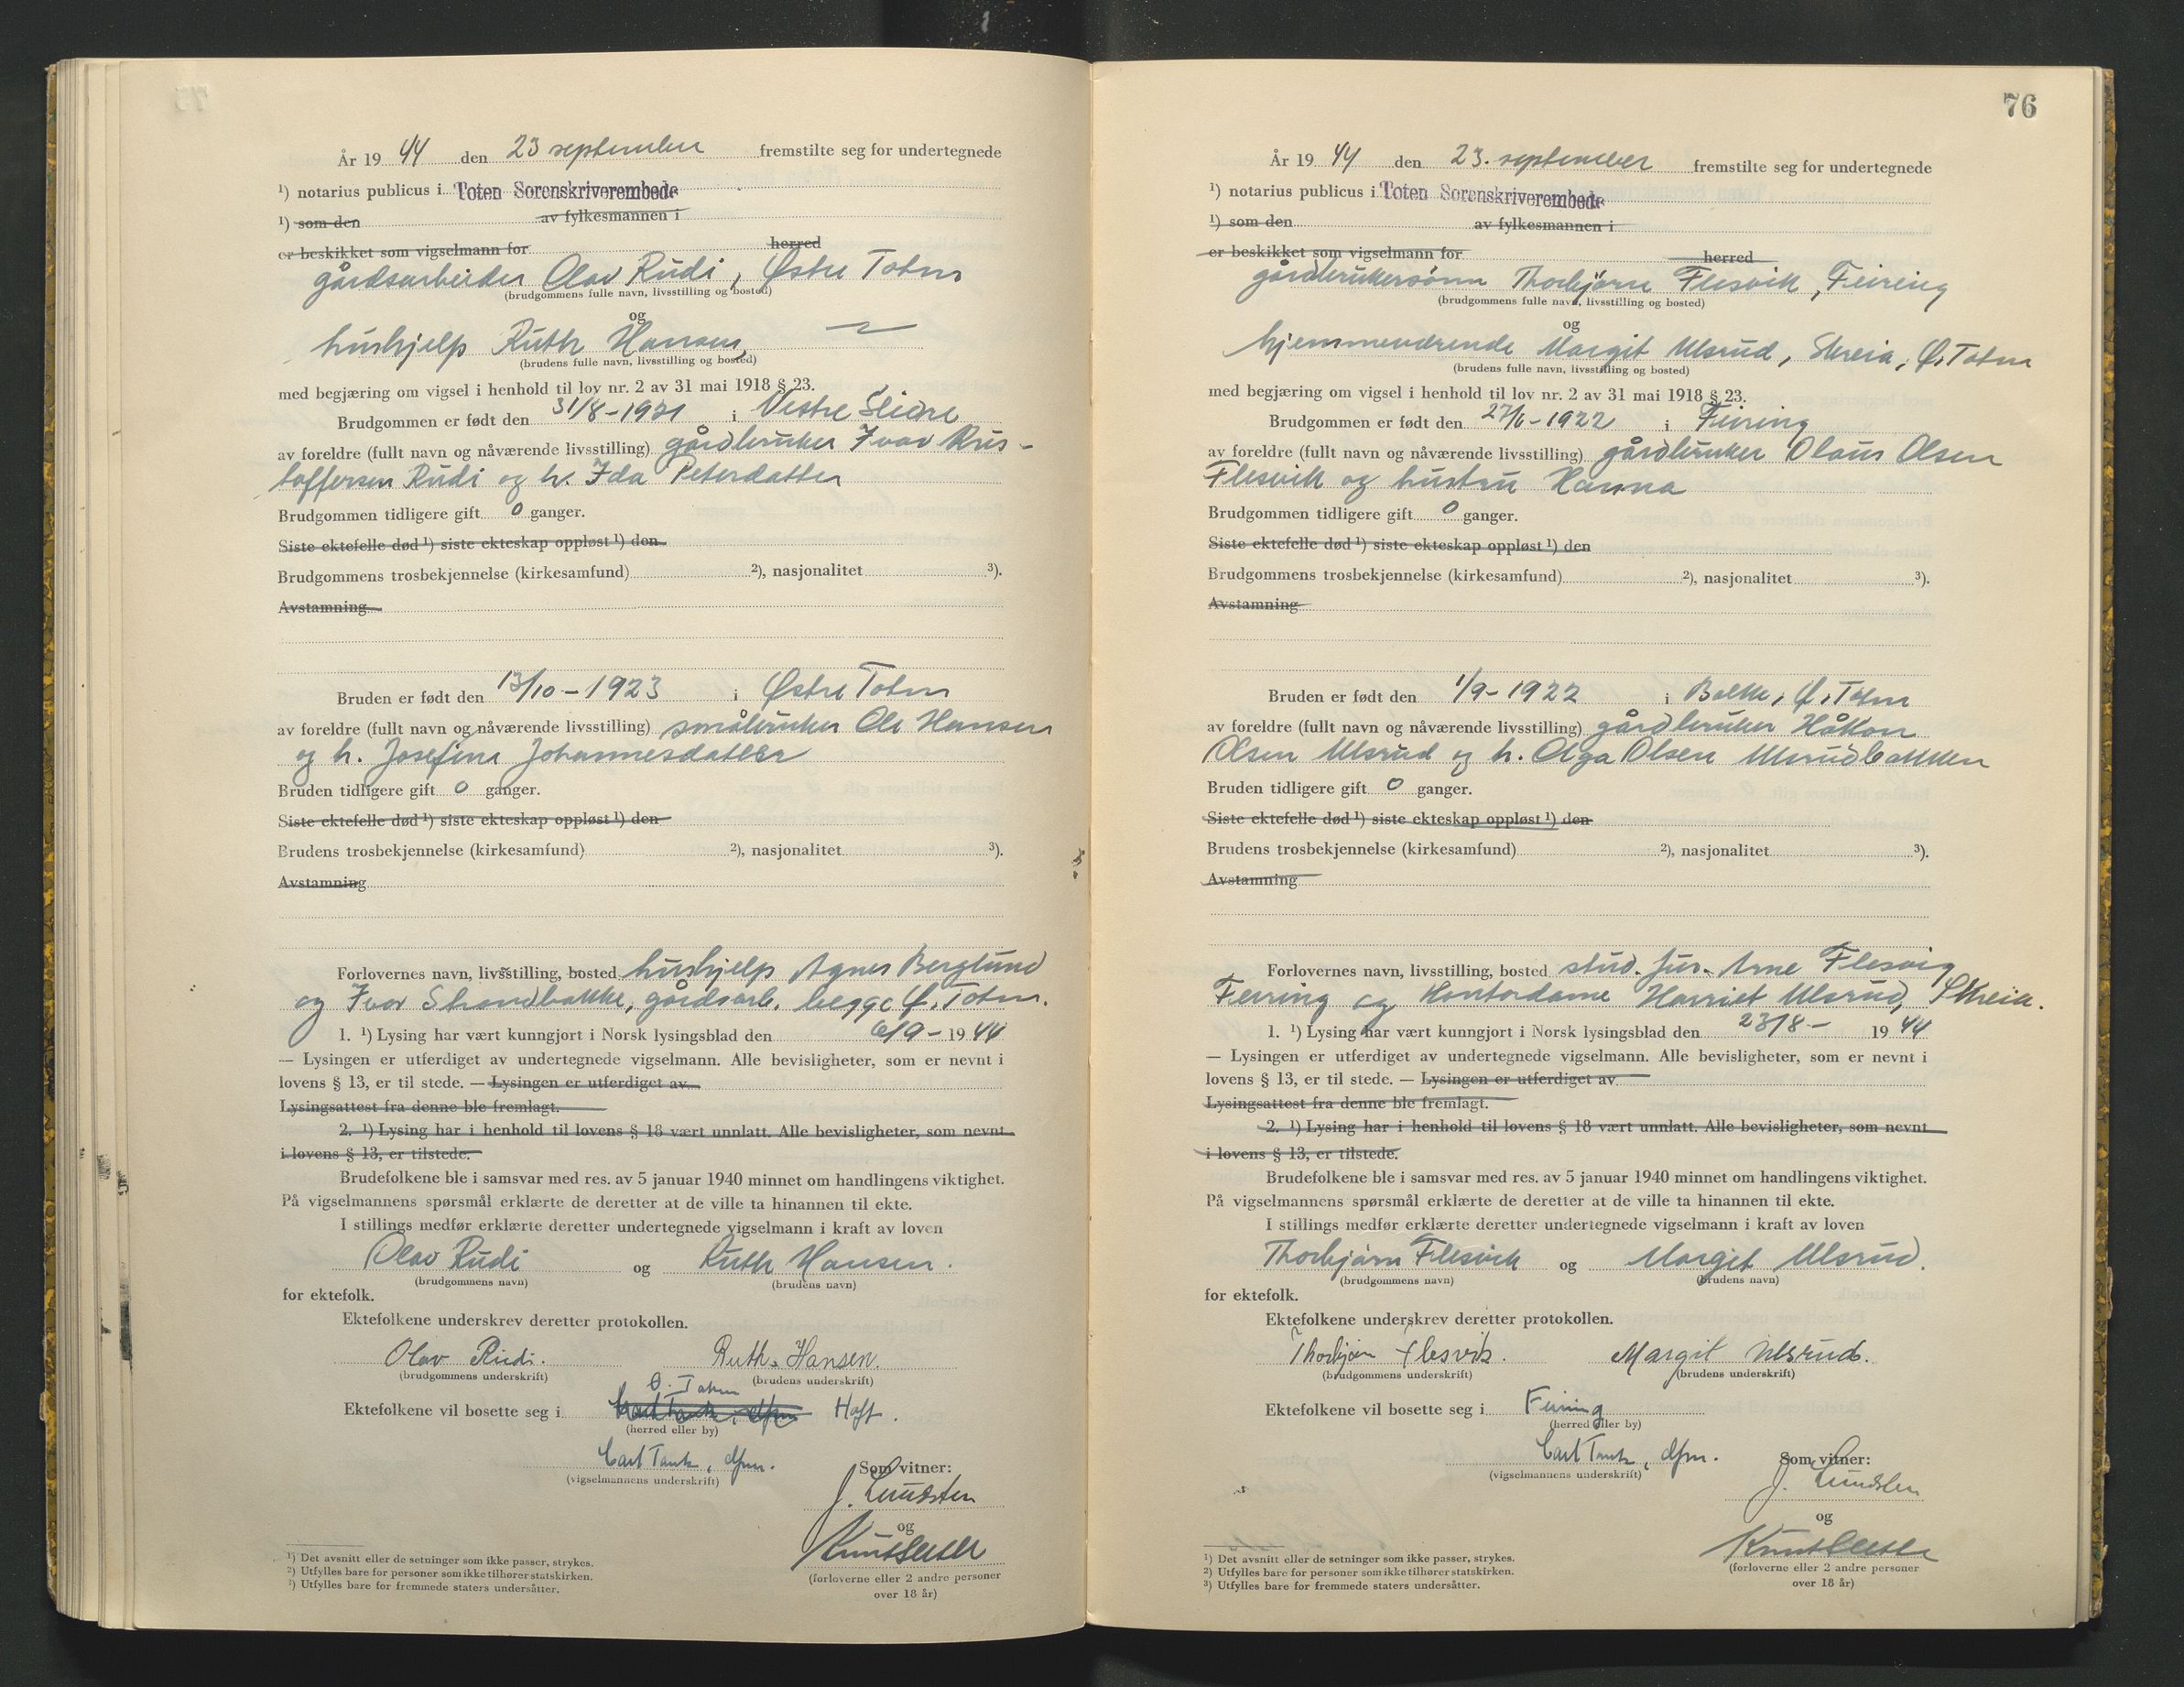 År 19 44 den 23 september fremstilte seg for undertegnede
¹) notarius publicus i Toten Sorenskriverembede
¹) som den av fylkesmannen i
er beskikket som vigselmann for herred
gårdsarbeider Olav Rudi, Østre Toten
(brudgommens fulle navn, livsstilling og bosted)
og
hushjelp Ruth Hansen,
(brudens fulle navn, livsstilling og bosted)
med begjæring om vigsel i henhold til lov nr. 2 av 31 mai 1918 § 23.
Brudgommen er født den 31/8-1921 i Vestre Slidre
av foreldre (fullt navn og nåværende livsstilling) gårdbruker Ivar Kris-
toffersen Rudi og h. Ida Petersdatter
Brudgommen tidligere gift 0 ganger.
Siste ektefelle død ¹) siste ekteskap oppløst ¹) den
Brudgommens trosbekjennelse (kirkesamfund) ²), nasjonalitet ³).
Avstamning
Bruden er født den 13/10-1923 i Østre Toten
av foreldre (fullt navn og nåværende livsstilling) småbruker Ole Hansen
og h. Josefine Johannesdatter
Bruden tidligere gift 0 ganger.
Siste ektefelle død ¹) siste ekteskap oppløst ¹) den
Brudens trosbekjennelse (kirkesamfund) ²), nasjonalitet ³).
Avstamning
Forlovernes navn, livsstilling, bosted hushjelp Agnes Berglund
og Ivar Strandbakke, gårdsarb. begge Ø. Toten.
1. ¹) Lysing har vært kunngjort i Norsk lysingsblad den 6/9- 19 44
— Lysingen er utferdiget av undertegnede vigselmann. Alle bevisligheter, som er nevnt i
lovens § 13, er til stede. — Lysingen er utferdiget av
Lysingsattest fra denne ble fremlagt.
2. ¹) Lysing har i henhold til lovens § 18 vært unnlatt. Alle bevisligheter, som nevnt
i lovens § 13, er tilstede.
Brudefolkene ble i samsvar med res. av 5 januar 1940 minnet om handlingens viktighet.
På vigselmannens spørsmål erklærte de deretter at de ville ta hinannen til ekte.
I stillings medfør erklærte deretter undertegnede vigselmann i kraft av loven
Olav Rudi og Ruth Hansen.
(brudgommens navn) (brudens navn)
for ektefolk.
Ektefolkene underskrev deretter protokollen.
Olav Rudi. Ruth Hansen.
(brudgommens underskrift) (brudens underskrift)
Ø. Toten
Ektefolkene vil bosette seg i
(herred eller by)
Carl Tank, dfm.
(vigselmannens underskrift)
Som vitner:
J. Lundsten
og
(forloverne eller 2 andre personer
over 18 år)
¹) Det avsnitt eller de setninger som ikke passer, strykes.
²) Utfylles bare for personer som ikke tilhører statskirken.
³) Utfylles bare for fremmede staters undersåtter.
76
År 19 44 den 23. september fremstilte seg for undertegnede
¹) notarius publicus i Toten Sorenskriverembede
¹) som den av fylkesmannen i
er beskikket som vigselmann for herred
gårdbrukersønn Thorbjørn Flesvik, Feiring
(brudgommens fulle navn, livsstilling og bosted)
og
hjemmeværende Margit Ulsrud, Skreia, Ø. Toten
(brudens fulle navn, livsstilling og bosted)
med begjæring om vigsel i henhold til lov nr. 2 av 31 mai 1918 § 23.
Brudgommen er født den 27/6-1922 i Feiring
av foreldre (fullt navn og nåværende livsstilling) gårdbruker Olaus Olsen
Flesvik og hustru Hanna
Brudgommen tidligere gift 0 ganger.
Siste ektefelle død ¹) siste ekteskap oppløst ¹) den
Brudgommens trosbekjennelse (kirkesamfund) ²), nasjonalitet ³).
Avstamning
Bruden er født den 1/9-1922 i Balke, Ø. Toten
av foreldre (fullt navn og nåværende livsstilling) gårdbruker Håkon
Olsen Ulsrud og h. Olga Olsen Ulsrudbakken
Bruden tidligere gift 0 ganger.
Siste ektefelle død ¹) siste ekteskap oppløst ¹) den
Brudens trosbekjennelse (kirkesamfund) ²), nasjonalitet ³).
Avstamning
Forlovernes navn, livsstilling, bosted stud. jur. Arne Flesvig
Feiring og Kontordame Harriet Ulsrud, Skreia.
1. ¹) Lysing har vært kunngjort i Norsk lysingsblad den 23/8- 19 44
— Lysingen er utferdiget av undertegnede vigselmann. Alle bevisligheter, som er nevnt i
lovens § 13, er til stede. — Lysingen er utferdiget av
Lysingsattest fra denne ble fremlagt.
2. ¹) Lysing har i henhold til lovens § 18 vært unnlatt. Alle bevisligheter, som nevnt
i lovens § 13, er tilstede.
Brudefolkene ble i samsvar med res. av 5 januar 1940 minnet om handlingens viktighet.
På vigselmannens spørsmål erklærte de deretter at de ville ta hinannen til ekte.
I stillings medfør erklærte deretter undertegnede vigselmann i kraft av loven
Thorbjørn Flesvik og Margit Ulsrud.
(brudgommens navn) (brudens navn)
for ektefolk.
Ektefolkene underskrev deretter protokollen.
Thorbjørn Flesvik. Margit Ulsrud.
(brudgommens underskrift) (brudens underskrift)
Ektefolkene vil bosette seg i Feiring
(herred eller by)
Carl Tank, dfm.
(vigselmannens underskrift)
Som vitner:
J. Lundsten
og
(forloverne eller 2 andre personer
over 18 år)
¹) Det avsnitt eller de setninger som ikke passer, strykes.
²) Utfylles bare for personer som ikke tilhører statskirken.
³) Utfylles bare for fremmede staters undersåtter.